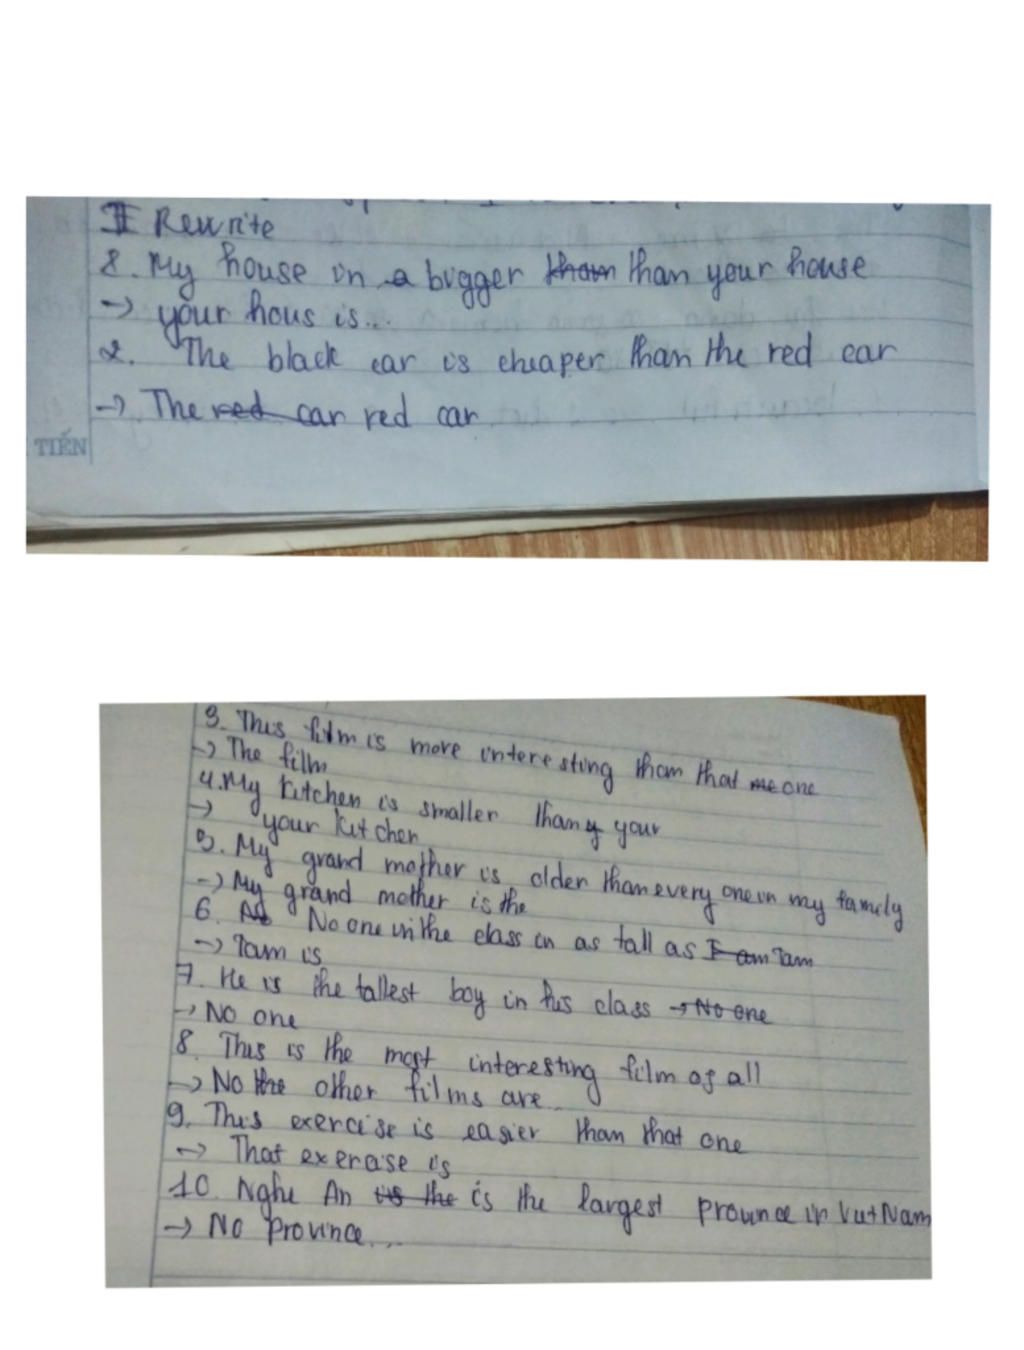 II Rewrite
1. My house in a bigger than than your house
→ your hous is...
2. The black car is cheaper than the red car
→ The red car red car
TIẾN
3. This film is more interesting than that me one
→ The film
4. My kitchen is smaller than y your
→ your kitchen
5. My grand mother is older than every one in my family
→ My grand mother is the
6. As No one in the class in as tall as I am Tam
→ Tam is
7. He is the tallest boy in his class → No one
→ No one
8. This is the most interesting film of all
→ No the other films are...
9. This exercise is easier than that one
→ That exercise is
10. Nghe An is the is the largest province in Viet Nam
→ No province...